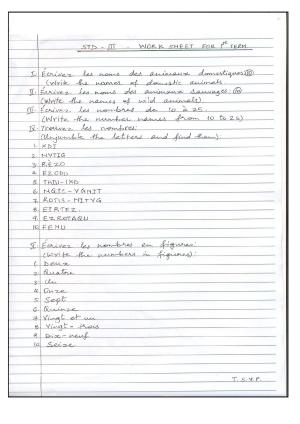 STD - III WORK SHEET FOR 1st TERM
I. Écrivez les noms des animaux domestiques
(Write the names of domestic animals
II. Écrivez les noms des animaux sauvages:
(Write the names of wild animals)
III. Écrivez les nombres de 10 à 25.
(Write the number names from 10 to 25)
IV. Trouvez les nombres:
(Unjumble the letters and find them).
1. XDI
2. NVTIG
3. RÉZO
4. EZODU
5. THUI-IXD
7. ROTIS - NITVG
8. EIRTEZ.
9. EZROTAQU
10. FENU
V. Écrivez les nombres en figures:
(Write the numbers in figures):
1. Deux
2. Quatre
3. Un
4. Onze
5. Sept
6. Quinze
7. Vingt et un
8. Vingt - trois
9. Dix - neuf
10. Seize